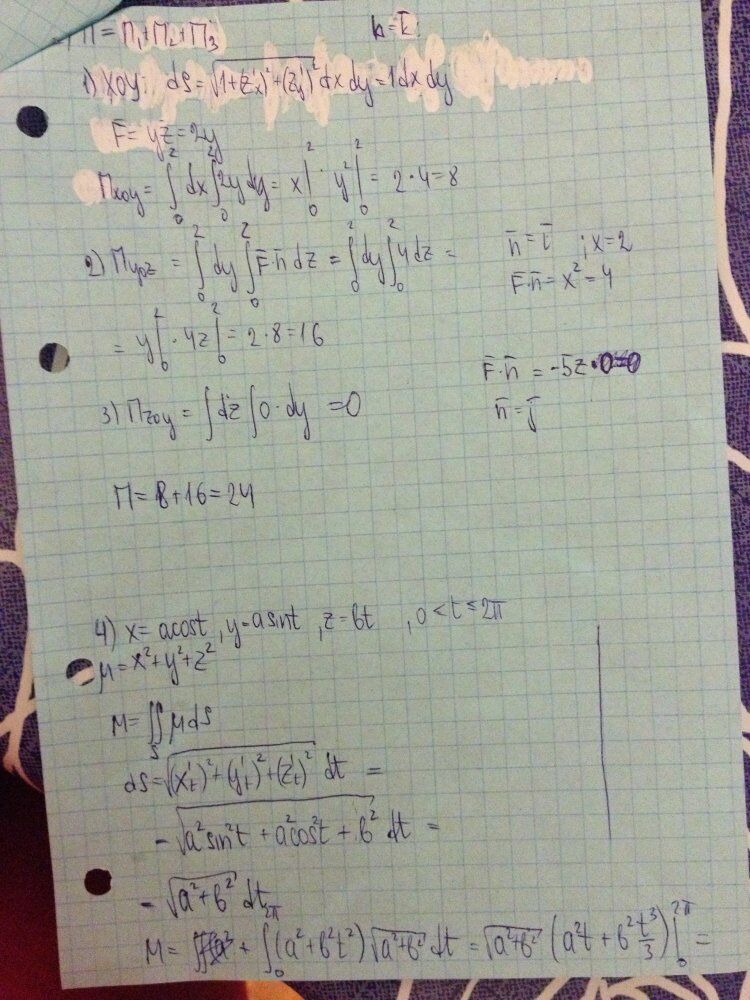 П = П₁+П₂+П₃
n̄=k̄
1) XOY: dS=√(1+(z'x)²+(z'y)²) dxdy=1dxdy
F̄=yz̄=2y
Пxoy = ∫₀² dx ∫₀² 2y dy = x|₀² · y²|₀² = 2·4=8
2) Пyoz = ∫₀² dy ∫₀² F̄·n̄ dz = ∫₀² dy ∫₀² 4 dz =
n̄=ī ; x=2
F̄·n̄=x²=4
= y|₀² · 4z|₀² = 2·8=16
F̄·n̄ = -5z·0=0
n̄=j̄
3) Пzoy = ∫dz ∫0·dy =0
П= 8+16=24
4) x= acost, y=asint, z=bt, 0<t≤2π
μ=x²+y²+z²
M=∬_S μdS
dS=√((x't)²+(y't)²+(z't)²) dt =
= √(a²sin²t + a²cos²t + b²) dt =
= √(a²+b²) dt
M= ∫₀^2π (a²+b²t²)√(a²+b²) dt = √(a²+b²) (a²t + b² t³/3)|₀^2π =